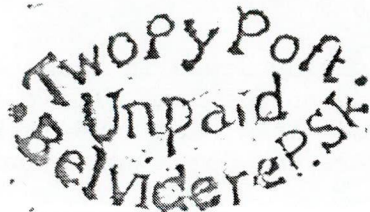 TwoPy Post.
Unpaid
BelvidereP.Sk.